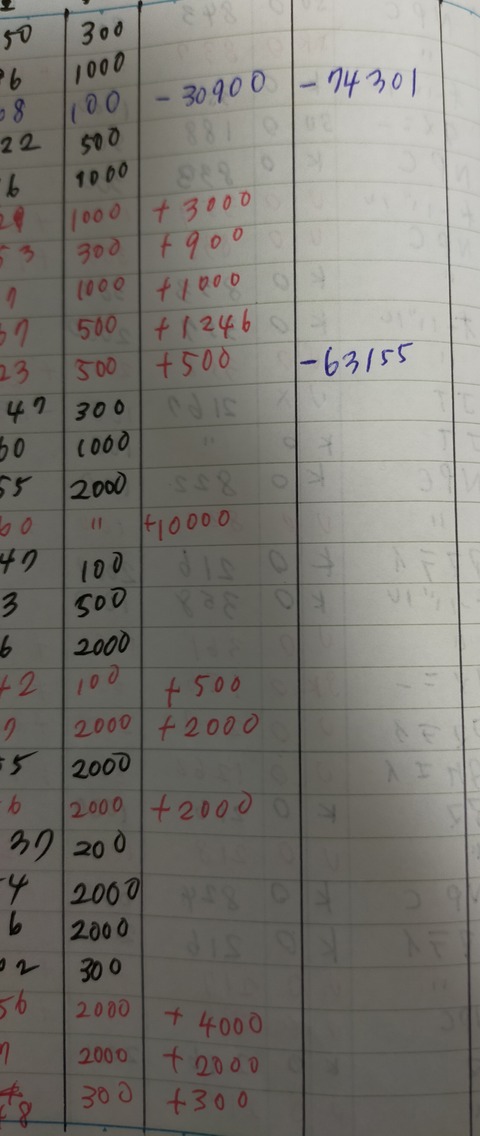 50 300
96 1000
08 100 - 30900 - 74301
22 500
6 1000
29 1000 + 3000
53 300 + 900
7 1000 + 1000
37 500 + 1246
23 500 + 500 - 63155
47 300
60 1000
55 2000
60 " + 10000
47 100
3 500
6 2000
+2 100 + 500
7 2000 + 2000
55 2000
6 2000 + 2000
37 200
4 2000
6 2000
02 300
56 2000 + 4000
7 2000 + 2000
8 300 + 300